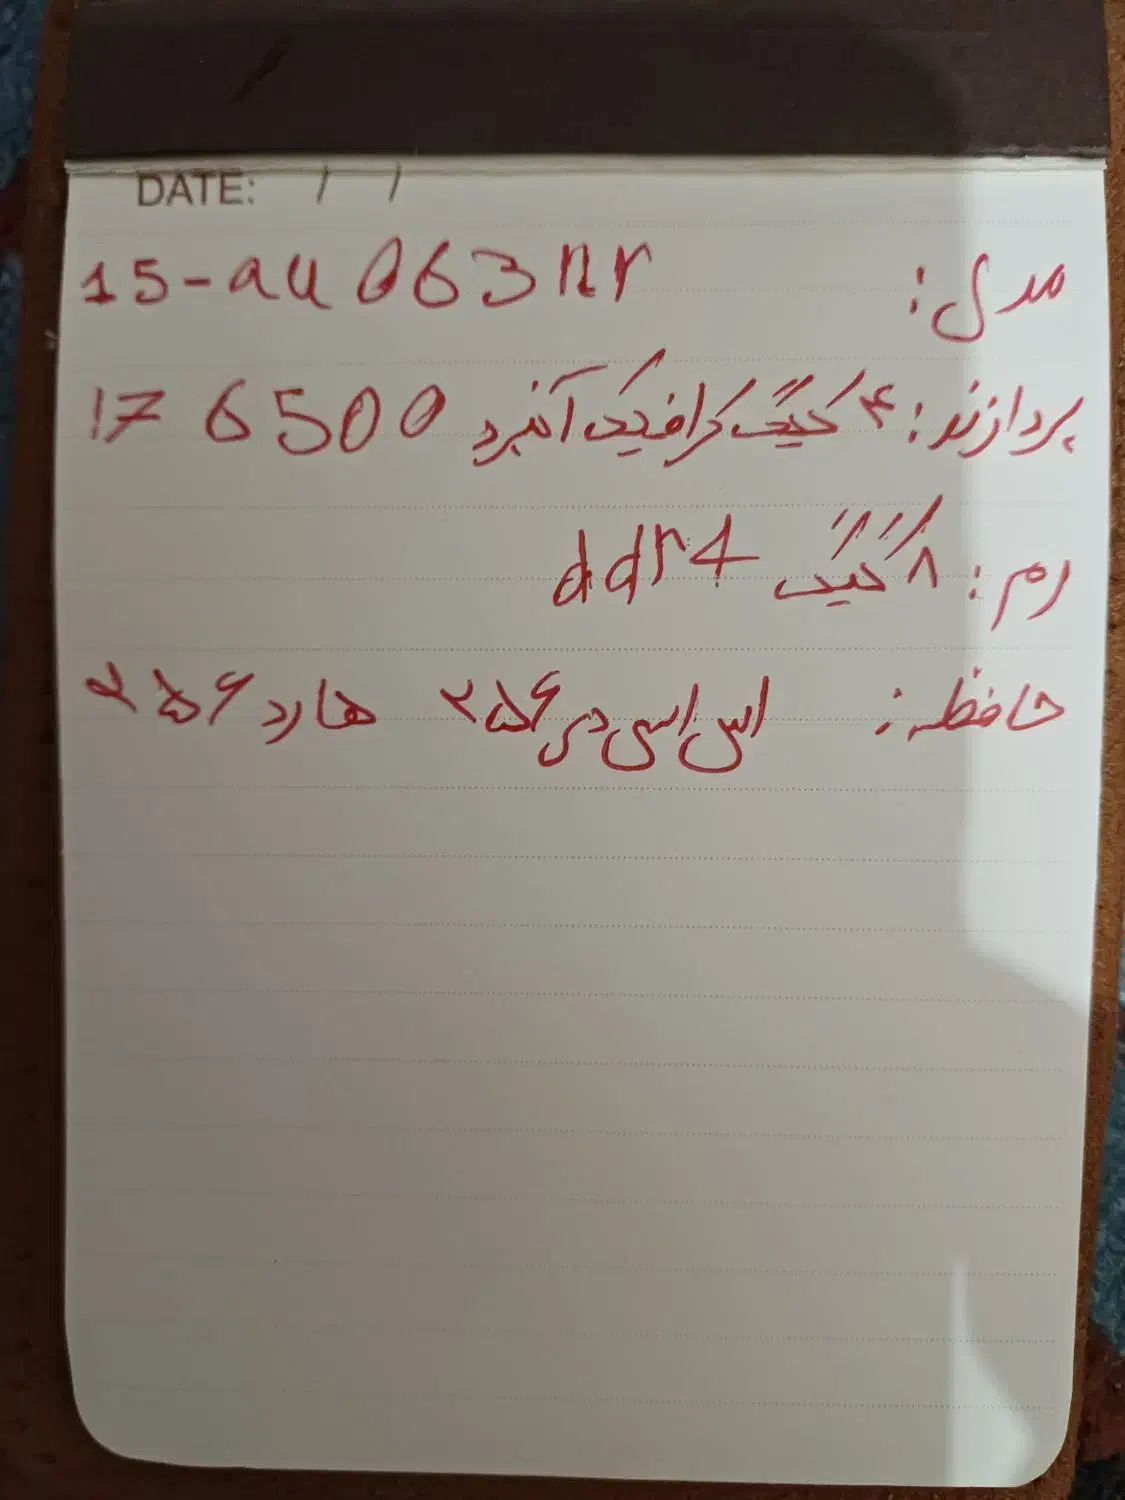 DATE: / /
مدل: 15-au 063nr
پردازند: ۴ گیگ گرافیک آنبرد i7 6500
رم: ۸ گیگ ddr4
حافظه: اس اس دی ۲۵۶ هارد ۲۵۶